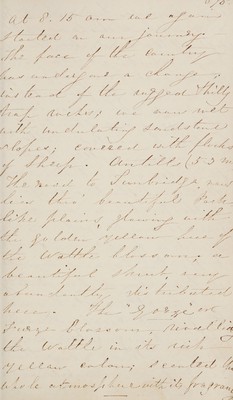 At 8.15 am we again
started on our journey.
The face of the country
has undergone a change,
instead of the rugged & hilly
trap rocks; we now met
with undulating sandstone
slopes; covered with flocks
of sheep. Antills (53 m
The road to Tunbridge, now
lies thro' beautiful Park
like plains, glowing with
the golden yellow hue of
the wattle blossom, a
beautiful shrub, very
abundantly distributed
here. The "Gorze" or
Furze blossom, rivalling
the wattle in its rich
yellow colour, scented the
whole atmosphere with its fragrance